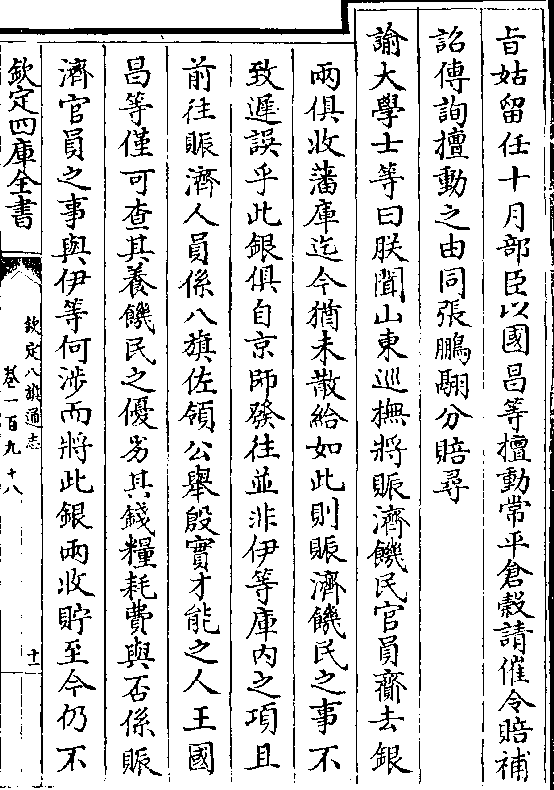 旨姑留任十月部臣以國昌等擅動常平倉榖請催令賠補
詔傳詢擅動之由同張鵬翮分賠尋
諭大學士等曰朕聞山東巡撫將賑濟饑民官員齎去銀
兩俱收藩庫迄今猶未散給如此則賑濟饑民之事不
致遲誤乎此銀俱自京師發往並非伊等庫內之項且
前往賑濟人員係八旗佐領公舉殷實才能之人王國
昌等僅可查其養饑民之優劣其錢糧耗費與否係賑
濟官員之事與伊等何涉而將此銀兩收貯至今仍不
欽定四庫全書
欽定八旗通志
卷一百九十八
十二